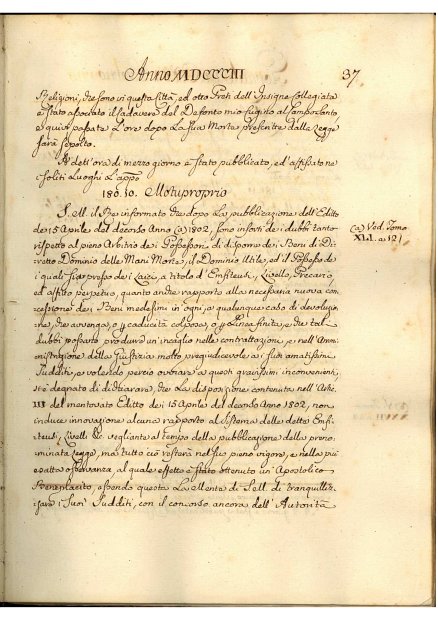 Anno MDCCCIII
37
Religioni, che sono in questa Città, ed otto Preti dell'Insigne Collegiata
è stato associato il Cadavere del Defonto mio Suocero al Camposanto,
e quivi passate l'ore dopo la sua Morte prescritte dalle Legge
sarà sepolto.
A' dell'ora di mezzo giorno è stato pubblicato, ed affissato ne
soliti Luoghi L'appo
180.30. Motuproprio
S. M. il Re informato che dopo la pubblicazione dell'Editto
de' 15 Aprile del decorso Anno (a) 1802, sono insorti de i dubbi tanto
rispetto al pieno Arbitrio de i Possessori di disporre de i Beni di Di-
retto Dominio delle Mani Morte, il Dominio Utile, ed il Possesso de
i quali sia presso dei Laici, a titolo d'Enfiteusi, Livello, Precario
ed affitto perpetuo, quanto anche rapporto alla necessaria nuova con
cessione de i Beni medesimi in ogni, e qualunque caso di devoluzio
ne, che avvenga, o p caducità colposa, o p Linea finita, e che tali
dubbi possano produrre un'incaglio nelle contrattazioni, e nell'Am
ministrazione della Giustizia molto pregiudicevole a i suoi amatissimi
Sudditi, e volendo perciò ovviare a questi gravissimi inconvenienti,
si è degnato di dichiarare, che La disposizione contenuta nell'Artic.
III del mentovato Editto de i 15 Aprile del decorso Anno 1802, non
induce innovazione alcuna rapporto al sistema delle dette Enfi
teusi, Livelli &c vegliante al tempo della pubblicazione della preno
minata Legge, ma tutto ciò resterà nel suo pieno vigore, e nella più
esatta osservanza, al quale effetto è stato ottenuto un'Apostolico
Beneplacito, essendo questa La Mente di S. M. di tranquilliz
zare i Suoi Sudditi, con il concorso ancora dell'Autorità
(a) Ved. Tomo
XLI. a 121